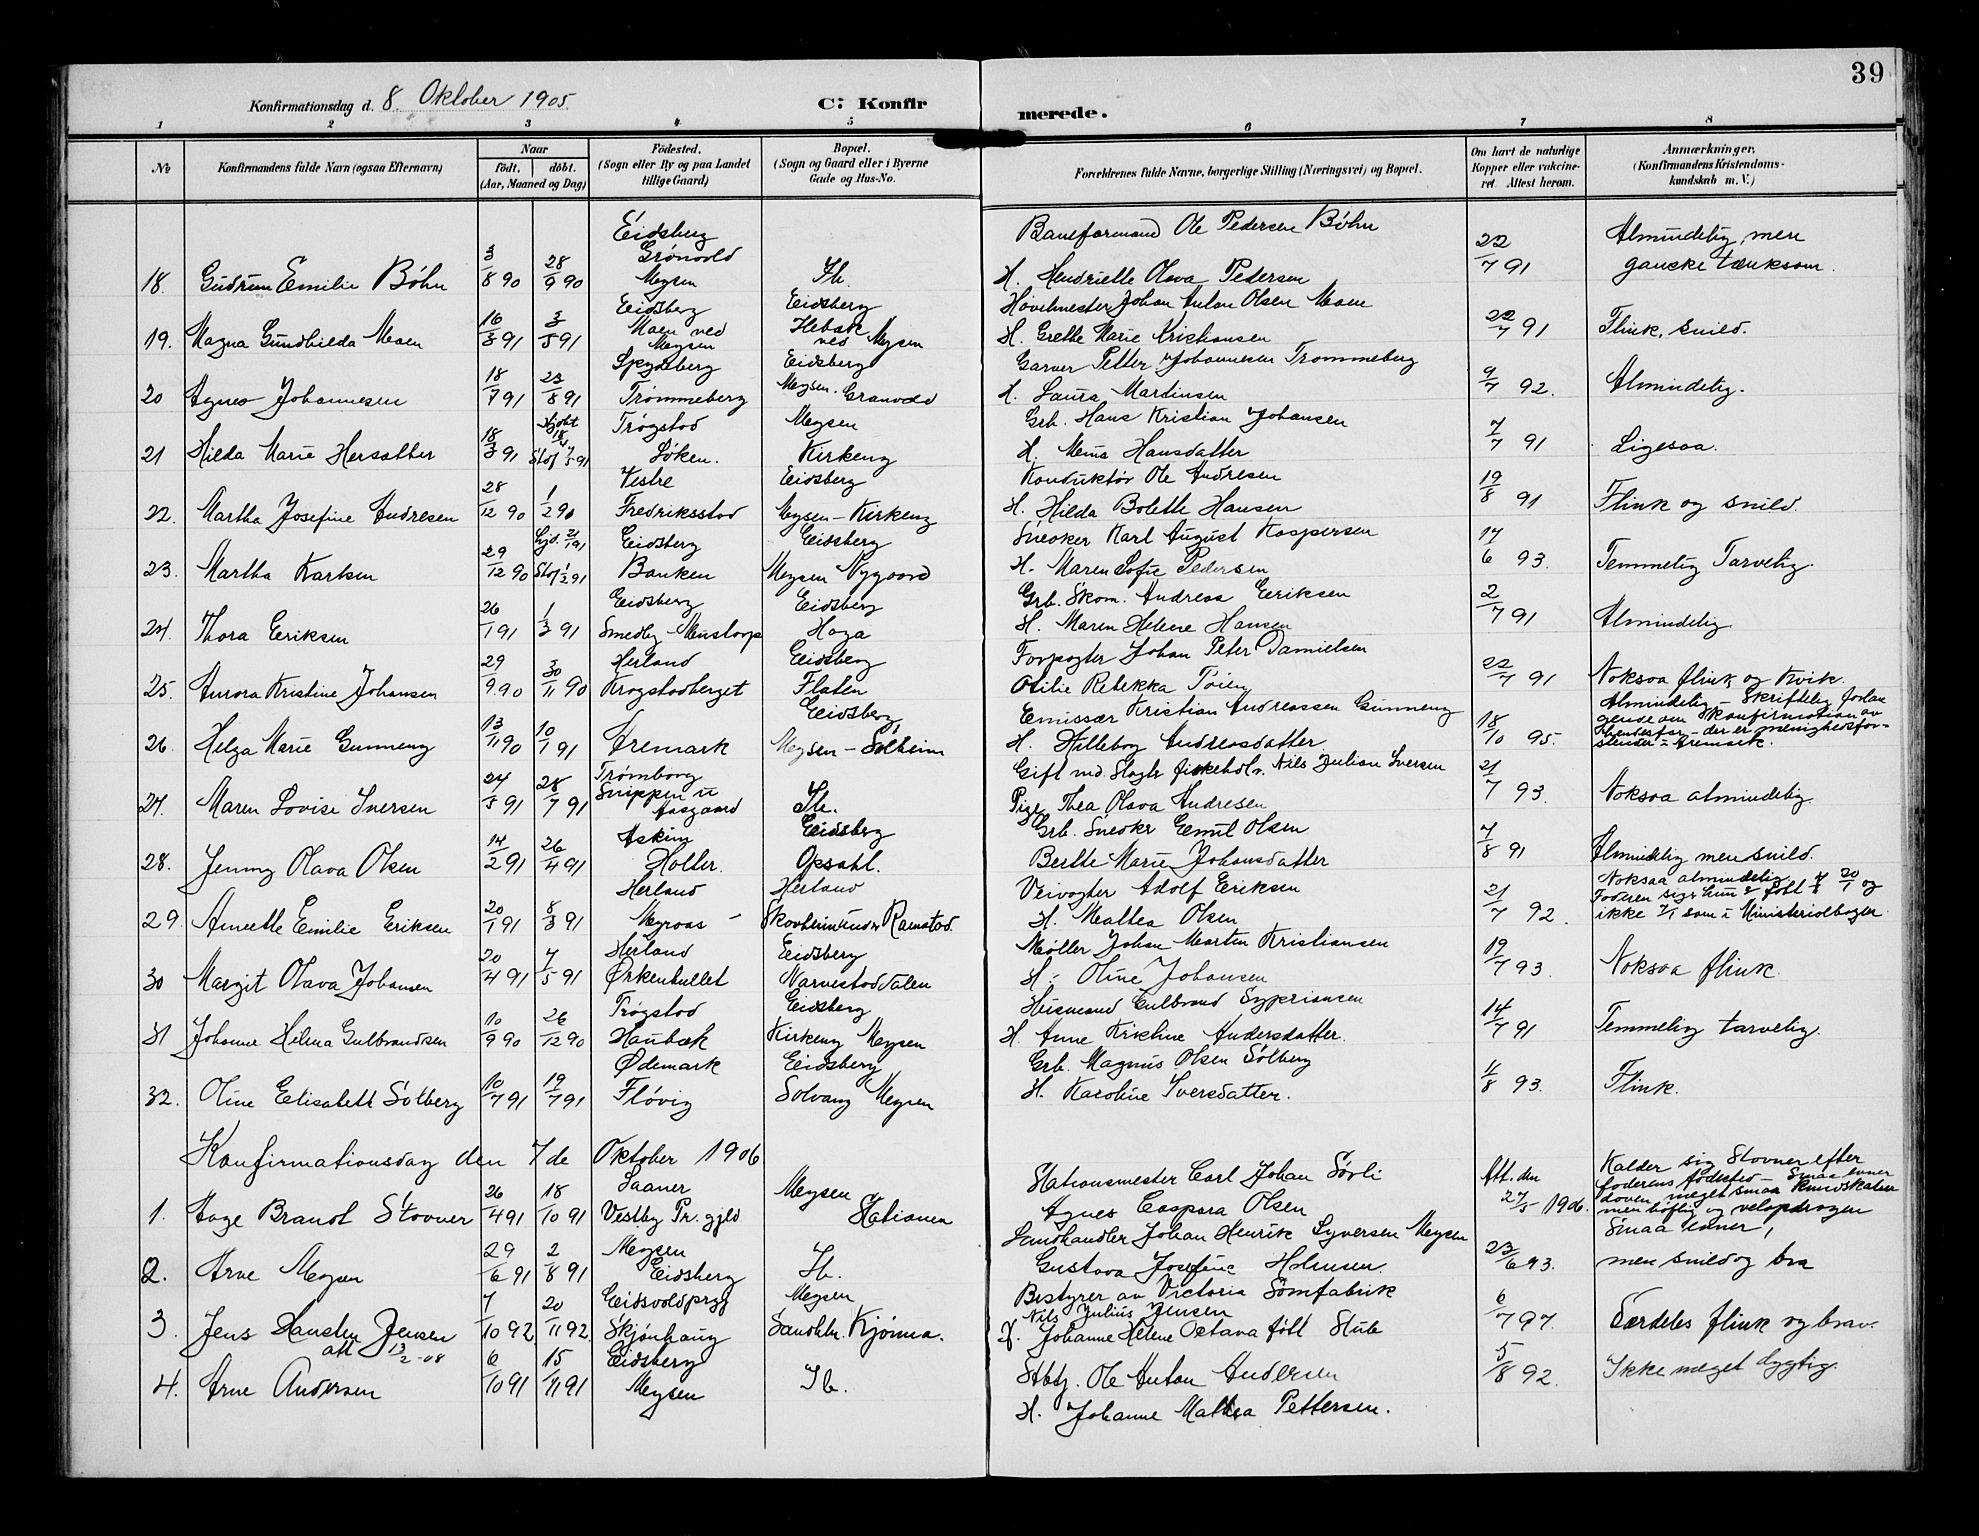 39
Konfirmationsdag d. 8. Oktober 1905. C: Konfirmerede.
1 2 3 4 5 6 7 8
No Konfirmandens fulde Navn (ogsaa Efternavn) Naar født. døbt. (Aar, Maaned og Dag) Fødested. (Sogn eller By og paa Landet tillige Gaard) Bopæl. (Sogn og Gaard eller i Byerne Gade og Hus-No. Forældrenes fulde Navne, borgerlige Stilling (Næringsvei) og Bopæl. Om havt de naturlige Kopper eller vakcineret. Attest herom. Anmærkninger, (Konfirmandens Kristendomskundskab m. V.)
Eidsberg Baneformand Ole Pedersen Bøhn Almindelig, men
18. Gudrun Emilie Bøhn 3/8 90 28/9 90 Grønvold Mysen Ib. H. Hendriette Olava Pedersen 22/7 91 ganske tænksom.
Eidsberg Eidsberg Høvelmester Johan Anton Olsen Moen
19. Magna Gundhilda Moen 16/3 91 3/5 91 Moen ved Mysen ved Mysen H. Grethe Marie Kristiansen 22/7 91 Flink, snild.
Spydeberg Eidsberg Garver Petter Johannesen Trømmeberg
20 Agnes Johannesen 18/7 91 23/8 91 Trømmeberg Mysen. Granvold H. Laura Martinsen 9/7 92. Almindelig.
Trøgstad Mysen Grb. Hans Kristian Johansen
21 Hilda Marie Hersætter 18/3 91 18/4 Stof 7/5 91 Løken. Kirkeng H. Mina Hansdatter 7/7 91 Ligesaa.
Vestre Eidsberg Konduktør Ole Andresen
22. Martha Josefine Andresen 28/12 90 1/2 90 Fredriksstad Mysen-Kirkeng H. Hilda Bolette Hansen 19/8 91 Flink og snild.
Hjd. 2/1 91 Eidsberg Eidsberg Snedker Karl August Kaspersen
23. Martha Karlsen 29/12 90 Stof 1/3 91 Banken Mysen Nygaard H. Maren Sofie Pedersen 17/6 93. Temmelig Tarvelig.
Eidsberg Eidsberg Grb. Skom. Andreas Eriksen
24. Thora Eriksen 26/1 91 1/3 91 Smedby-Mustorp Haga H. Maren Helene Hansen 2/7 91 Almindelig
Herland Eidsberg Forpagter Johan Peter Danielsen
25. Aurora Kristine Johansen 29/9 90 30/11 90 Krogstadberget Flaten Otilie Rebekka Tøien 22/7 91 Noksaa flink og kvik.
Eidsberg Emissær Kristian Andreassen Gunneng Almindelig - Skriftelig forlangende om Konfirmation av
26. Helga Marie Gunneng 13/11 90 10/1 91 Aremark Mysen-Solheim H. Hilleborg Andreasdatter 18/10 95. hendes far - der er menighedsforstander i Aremark.
Trømborg Gift md. Slagter fiskehdl. Nils Julian Iversen
27. Maren Lovise Iversen 24/5 91 28/7 91 Snippen u Aasgaard Ib. Pige Thea Olava Andresen 21/7 93. Noksaa almindelig.
Askim Eidsberg Grb. Snedkr Emil Olsen
28. Jenny Olava Olsen 14/2 91 26/4 91 Holter. Opsahl. Berthe Marie Johansdatter 7/8 91 Almindelig men snild.
Herland Herland Veivogter Adolf Eriksen Noksaa almindelig
29. Anethe Emilie Eriksen 20/1 91 8/3 91 Myraas Skovheim under Ramstad. H. Mathea Olsen 21/7 92. Faderen siger hun er født 20/1 og ikke 7/1 som i Ministerialbogen.
Herland Eidsberg Møller Johan Martin Kristiansen
30 Margit Olava Johansen 20/4 91 7/5 91 Ørkenhullet Narvestaddalen H. Oline Johansen 19/7 93. Noksaa flink.
Trøgstad Eidsberg Husmand Gulbrand Sypriansen
31 Johanne Helma Gulbrandsen 10/9 90 26/12 90 Haubæk Kirkeng Mysen H. Anne Kristine Andersdatter. 14/7 91 Temmelig tarvelig.
Ødemark Eidsberg Grb. Magnus Olsen Solberg
32. Oline Elisabeth Solberg 10/7 91 19/7 91 Fløvig Solvang Mysen H. Karoline Iversdatter. 4/8 93. Flink.
Konfirmationsdag den 7de Oktober 1906
Saaner Mysen Stationsmester Carl Johan Sørli Att. den Kalder sig Stovner efter faderens fødested - Smaa evner
1. Aage Brandt Stovner 26/4 91 18/10 91 Vestby Pr.gjld Stationen Agnes Caspara Olsen 27/5 1906. doven, meget smaa kundskaber men høflig og velopdragen
Mysen Landhandler Johan Henrik Syversen Mysen Smaa evner,
2. Arne Mysen 29/6 91 2/8 91 Eidsberg Ib. Gustava Josefine Holmsen. 23/6 93. men snild og bra
Eidsvold prgj Mysen Bestyrer av Victoria Sømfabrik
3. Jens Jensen 7/10 92 20/11 92. Skjønhaug Landhdr. Kjønna. Nils Julius Jensen H. Johanne Helene Octava født Stub 6/7 97. Særdeles flink og brav.
att 13/2-08
Eidsberg Stbtj. Ole Anton Andersen
4. Arne Andersen 6/10 91 15/11 91 Mysen Ib. H. Johanne Mathea Pettersen. 5/8 92. Ikke meget dygtig.